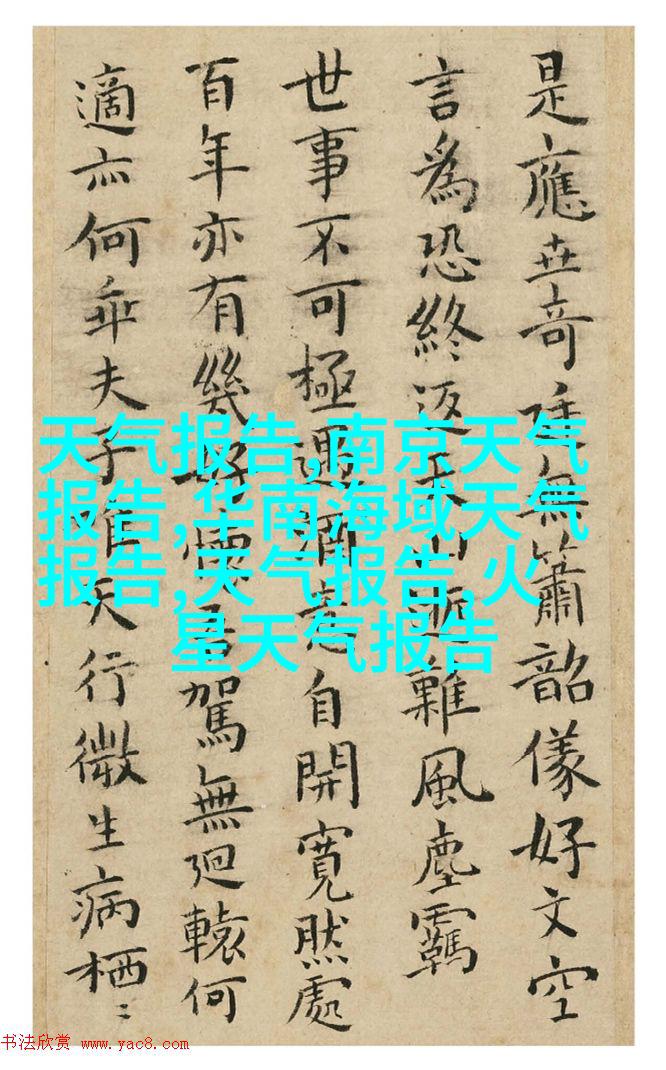 是應世奇無簫韶儀好文空
言為恐終返山難風塵羈
世事不可極遇酒意自開寬然處
百年亦有幾好懷吾駕無迴轅何
適亦何乖夫子天行微生病栖〻
天气报告,南京天气
报告,华南海域天气
报告,天气报告,火
星天气报告
书法欣赏 www.yac8.com